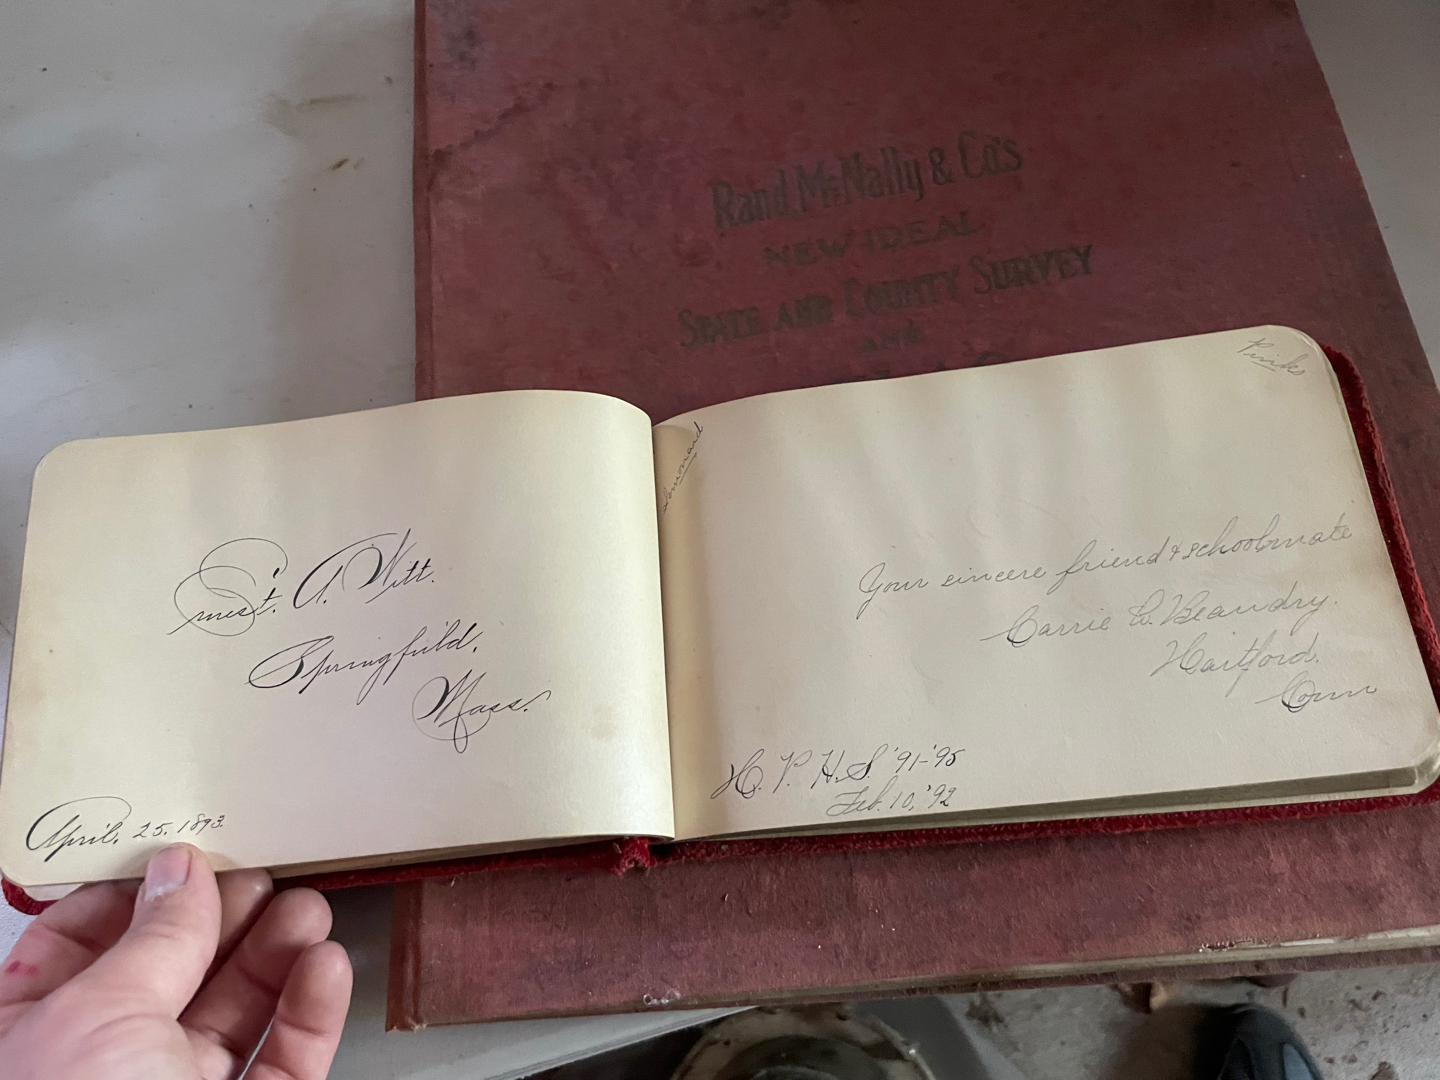 Rand, McNally & Co's
NEW IDEAL
STATE AND COUNTY SURVEY
AND
Ernest. A. Witt.
Springfield,
Mass.
April. 25. 1893.
Pinks
Your sincere friend & schoolmate
Carrie W. Beaudry.
Hartford.
Conn
H. P. H. S. '91-'95
Feb. 10, '92